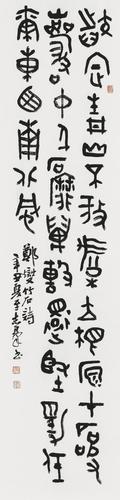 齩定青山不放鬆立根原在破
巖中千磨萬擊還堅勁任
爾東西南北風
鄭燮竹石詩
辛丑夏至